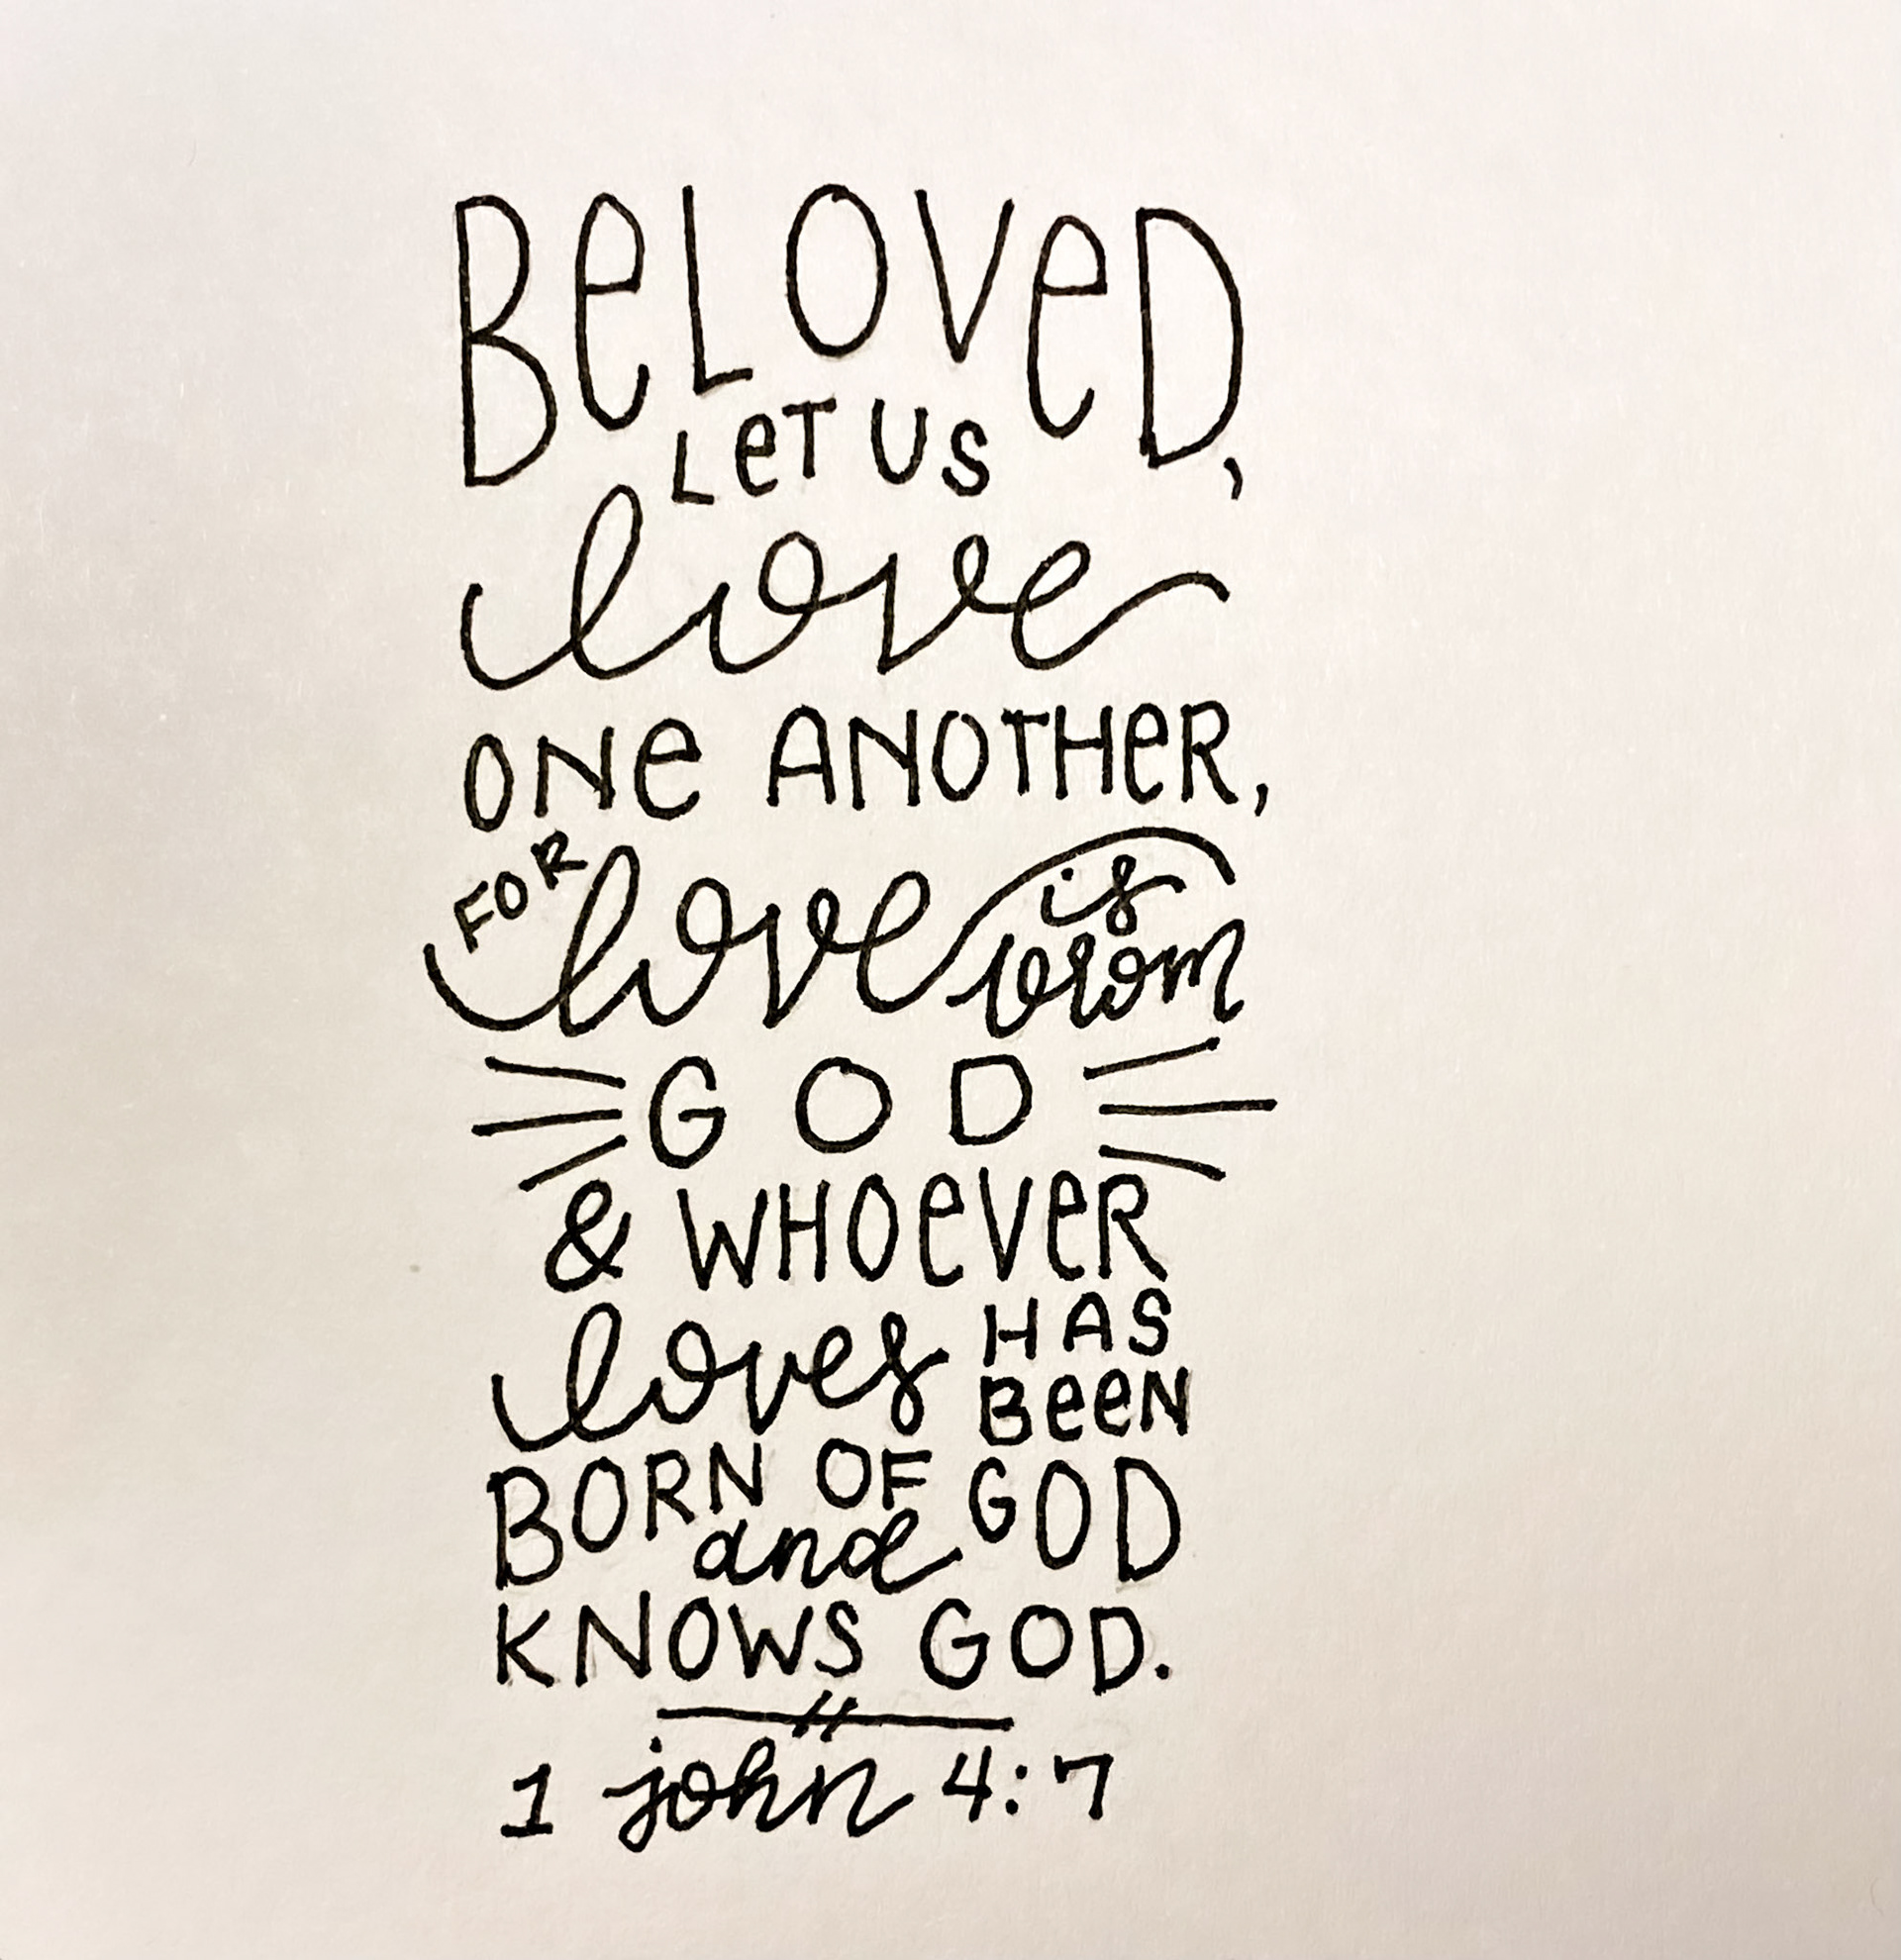 BeLOVeD,
LeT US
love
ONe ANOTHeR,
FOR love is from
GOD
& WHOeVeR
loves HAS BeeN
BORN OF GOD
and
KNOWS GOD.
1 john 4:7